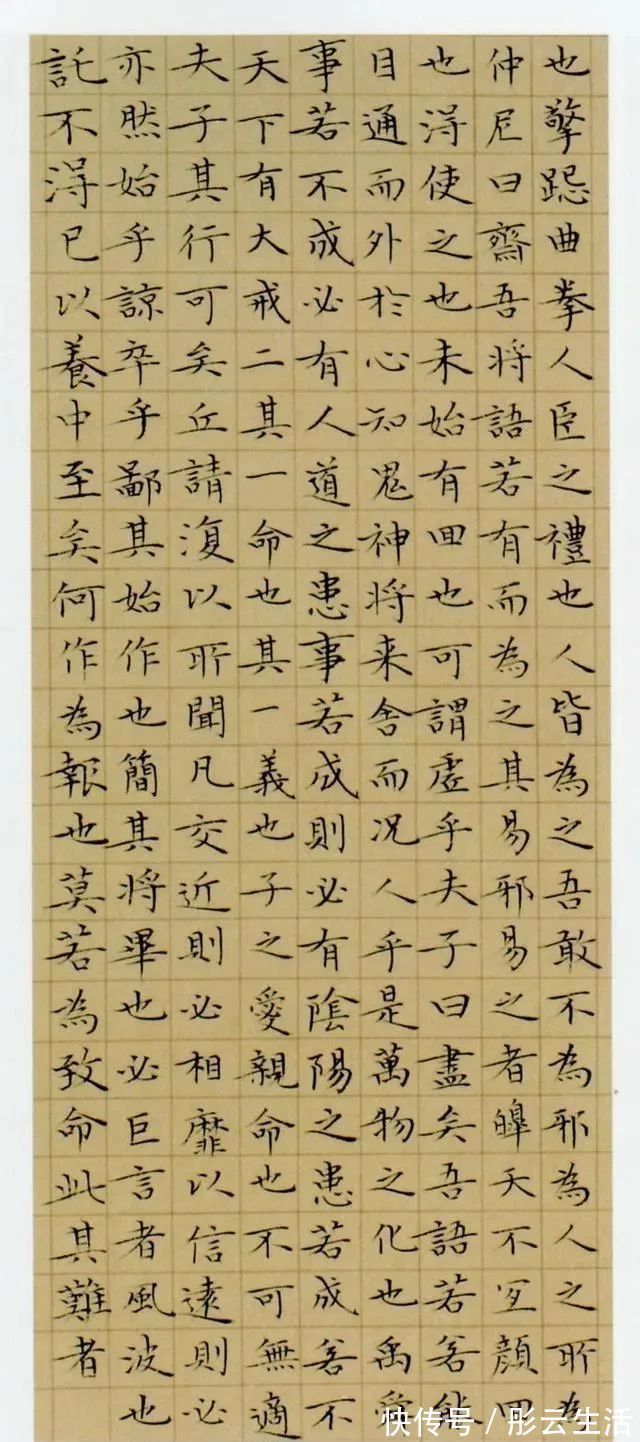 也擎跽曲拳人臣之禮也人皆為之吾敢不為邪為人之所為
仲尼曰齋吾將語若有而為之其易邪易之者皞天不宜顏回
也得使之也未始有回也可謂虛乎夫子曰盡矣吾語若若能
目通而外於心知鬼神將来舍而况人乎是萬物之化也禹舜
事若不成必有人道之患事若成則必有陰陽之患若成若不
天下有大戒二其一命也其一義也子之愛親命也不可無適
夫子其行可矣丘請復以所聞凡交近則必相靡以信遠則必
亦然始乎諒卒乎鄙其始作也簡其將畢也必巨言者風波也
託不得已以養中至矣何作為報也莫若為致命此其難者
快传号 / 彤云生活